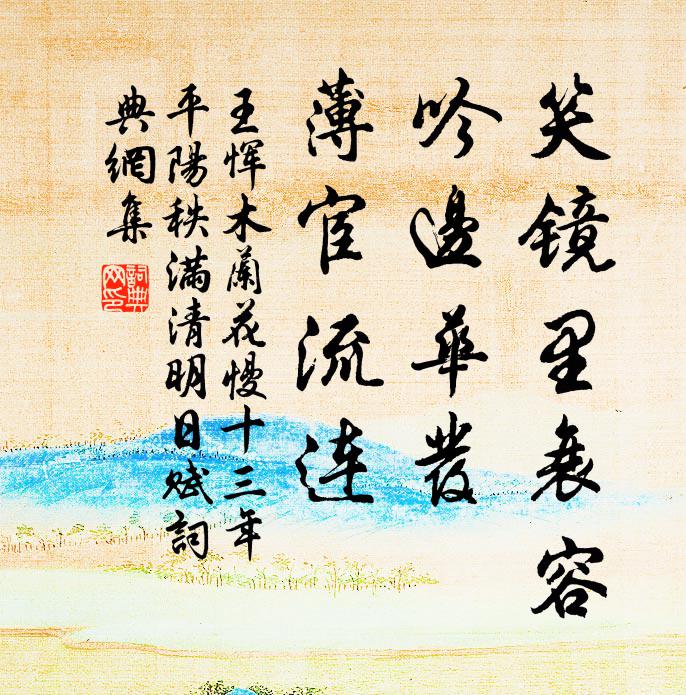 笑镜里衰容
吟邊華发
薄宦流连
王恽木蘭花慢十三年
平陽秩满清明日赋詞
典網集
詞典網印